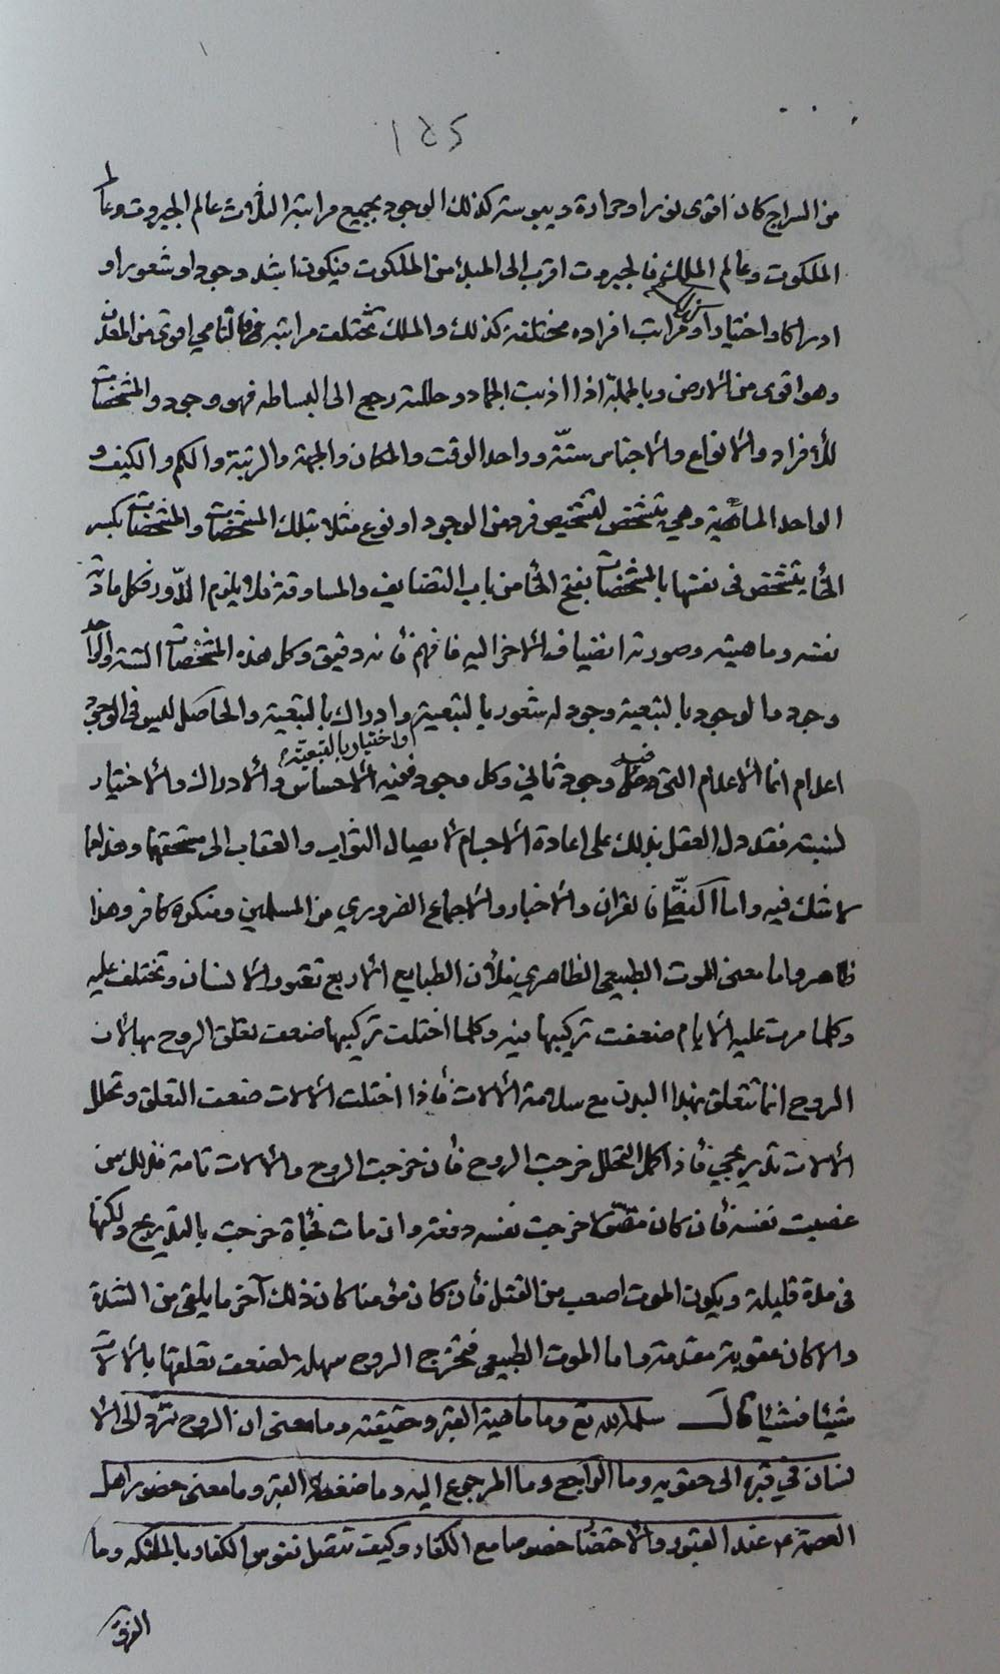 ١٤٥
من السراج كان اقوى نورا وحرارة ويبوسته كذلك الوجود بجميع مراتبه الثلاث عالم الجبروت وعالم
الملكوت وعالم الملك فالجبروت اقرب الى المبدء من الملكوت فيكون اشد وجودا وشعورا و
ادراكا واختيارا ومراتب افراده مختلفة كذلك والملك تختلف مراتبه فالنامي اقوى من المعدن
وهو اقوى من الارض وبالجملة اذا اذيب الجماد وحللته رجع الى البساطه فهو وجود والمشخصات
للأفراد والانواع والاجناس ستّة وواحد الوقت والمكان والجهة والرتبة والكم والكيف و
الواحد الماهية وهي بتشخص لتشخيص فرد من الوجود او نوع مثلا بتلك المشخصات والمشخصات بكسر
الخا يتشخص في نفسها بالمشخصات بفتح الخا من باب التضايف والمساوقة فلا يلزم الدّور فكل مادته
نفسه وماهيته وصورته انضياف الاخر اليه فافهم فأنه دقيق وكل هذه المشخصات الستة والواحد
وجود ما لوجود بالتبعية وجود له شعور بالتبعية وادراك بالتبعية واختيار بالتبعيّة والحاصل ليس في الوجود
اعدام انما الاعدام التي فيه وجود ثاني وكل وجود ففيه الاحساس والادراك والاختيار
لنسبته فقد دل العقل بذلك على اعادة الاجسام لايصال الثواب والعقاب الى مستحقها وهذا مما
لا شك فيه واما النقل فالقران والاخبار والاجماع الضروري من المسلمين ومنكره كافر وهذا
ظاهر واما معنى الموت الطبيعي الظاهري فلأن الطبايع الاربع تعتور الانسان وتختلف عليه
وكلما مرت عليه الايام ضعفت تركيبها فيه وكلما اختلت تركيبها ضعف تعلق الروح بها لان
الروح انما تتعلق بهذا البدن مع سلامة الالات فأذا اختلت الالات ضعف التعلق وتحلل
الالات تدريجي فأذا كمل التحلل خرجت الروح فأن خرجت الروح والالات تامة فذلك من
غصبت نفسه فأن كان مقتولا خرجت نفسه دفعة وان مات فجأة خرجت بالتدريج ولكنها
في مدة قليلة ويكون الموت اصعب من القتل فأن كان مؤمنا كان ذلك آخر ما يلقى من الشدة
والا كان عقوبة مقدمة واما الموت الطبيعي فتخرج الروح سهلة لضعف تعلقها بالالات
شيئا فشيئا قال سلمه الله تع وما ماهية القبر وحقيقته وما معنى ان الروح تردّ الى الا
نسان في قبره الى حقويه وما الراجع وما المرجوع اليه وما ضغطة القبر وما معنى حضور اهل
العصمة ع عند القبور والاحتضا خصوصا مع الكفار وكيف تتصل نفوس الكفار بالملئكة وما
الفرق